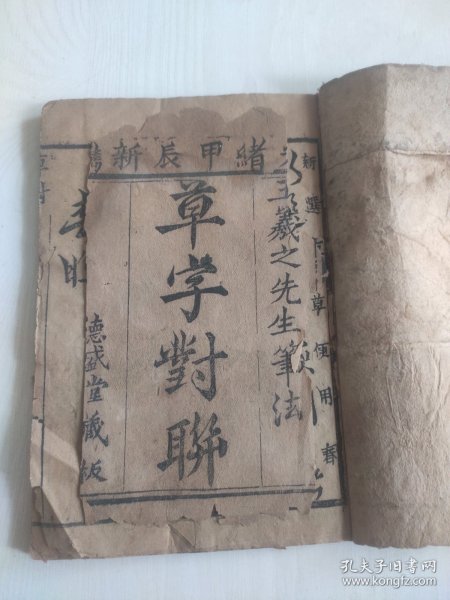 緒甲辰新
王羲之先生筆法
草字對聯
德盛堂藏板
新選
草便用春
孔夫子旧书网
www.kongfz.com